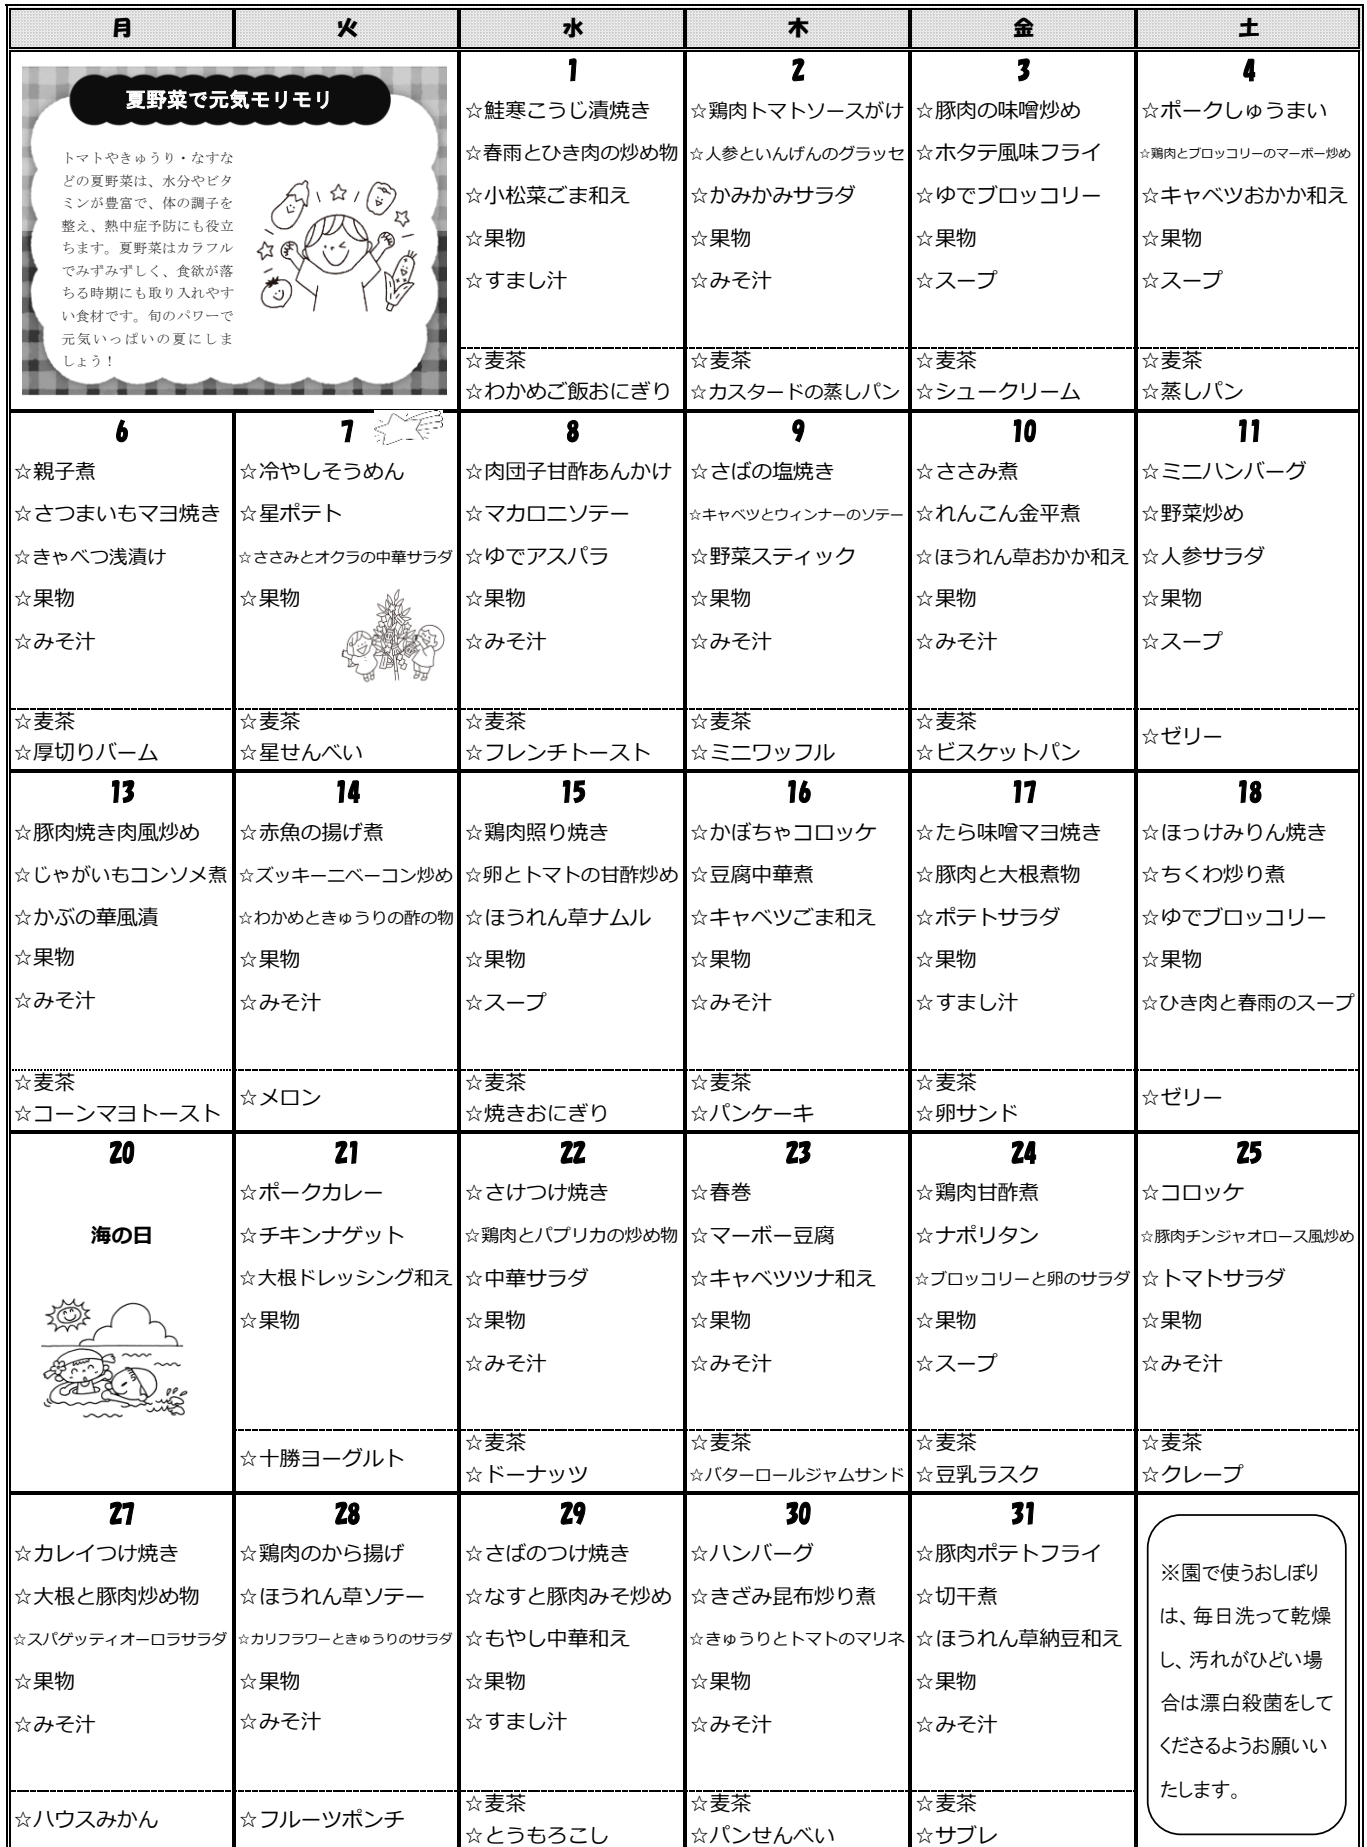 月
火
水
木
金
土
夏野菜で元気モリモリ
トマトやきゅうり・なすな
どの夏野菜は、水分やビタ
ミンが豊富で、体の調子を
整え、熱中症予防にも役立
ちます。夏野菜はカラフル
でみずみずしく、食欲が落
ちる時期にも取り入れやす
い食材です。旬のパワーで
元気いっぱいの夏にしま
しょう！
1
☆鮭寒こうじ漬焼き
☆春雨とひき肉の炒め物
☆小松菜ごま和え
☆果物
☆すまし汁
☆麦茶
☆わかめご飯おにぎり
2
☆鶏肉トマトソースがけ
☆人参といんげんのグラッセ
☆かみかみサラダ
☆果物
☆みそ汁
☆麦茶
☆カスタードの蒸しパン
3
☆豚肉の味噌炒め
☆ホタテ風味フライ
☆ゆでブロッコリー
☆果物
☆スープ
☆麦茶
☆シュークリーム
4
☆ポークしゅうまい
☆鶏肉とブロッコリーのマーボー炒め
☆キャベツおかか和え
☆果物
☆スープ
☆麦茶
☆蒸しパン
6
☆親子煮
☆さつまいもマヨ焼き
☆きゃべつ浅漬け
☆果物
☆みそ汁
☆麦茶
☆厚切りバーム
7
☆冷やしそうめん
☆星ポテト
☆ささみとオクラの中華サラダ
☆果物
☆麦茶
☆星せんべい
8
☆肉団子甘酢あんかけ
☆マカロニソテー
☆ゆでアスパラ
☆果物
☆みそ汁
☆麦茶
☆フレンチトースト
9
☆さばの塩焼き
☆キャベツとウィンナーのソテー
☆野菜スティック
☆果物
☆みそ汁
☆麦茶
☆ミニワッフル
10
☆ささみ煮
☆れんこん金平煮
☆ほうれん草おかか和え
☆果物
☆みそ汁
☆麦茶
☆ビスケットパン
11
☆ミニハンバーグ
☆野菜炒め
☆人参サラダ
☆果物
☆スープ
☆ゼリー
13
☆豚肉焼き肉風炒め
☆じゃがいもコンソメ煮
☆かぶの華風漬
☆果物
☆みそ汁
☆麦茶
☆コーンマヨトースト
14
☆赤魚の揚げ煮
☆ズッキーニベーコン炒め
☆わかめときゅうりの酢の物
☆果物
☆みそ汁
☆メロン
15
☆鶏肉照り焼き
☆卵とトマトの甘酢炒め
☆ほうれん草ナムル
☆果物
☆スープ
☆麦茶
☆焼きおにぎり
16
☆かぼちゃコロッケ
☆豆腐中華煮
☆キャベツごま和え
☆果物
☆みそ汁
☆麦茶
☆パンケーキ
17
☆たら味噌マヨ焼き
☆豚肉と大根煮物
☆ポテトサラダ
☆果物
☆すまし汁
☆麦茶
☆卵サンド
18
☆ほっけみりん焼き
☆ちくわ炒り煮
☆ゆでブロッコリー
☆果物
☆ひき肉と春雨のスープ
☆ゼリー
20
海の日
21
☆ポークカレー
☆チキンナゲット
☆大根ドレッシング和え
☆果物
☆十勝ヨーグルト
22
☆さけつけ焼き
☆鶏肉とパプリカの炒め物
☆中華サラダ
☆果物
☆みそ汁
☆麦茶
☆ドーナッツ
23
☆春巻
☆マーボー豆腐
☆キャベツツナ和え
☆果物
☆みそ汁
☆麦茶
☆バターロールジャムサンド
24
☆鶏肉甘酢煮
☆ナポリタン
☆ブロッコリーと卵のサラダ
☆果物
☆スープ
☆麦茶
☆豆乳ラスク
25
☆コロッケ
☆豚肉チンジャオロース風炒め
☆トマトサラダ
☆果物
☆みそ汁
☆麦茶
☆クレープ
27
☆カレイつけ焼き
☆大根と豚肉炒め物
☆スパゲッティオーロラサラダ
☆果物
☆みそ汁
☆ハウスみかん
28
☆鶏肉のから揚げ
☆ほうれん草ソテー
☆カリフラワーときゅうりのサラダ
☆果物
☆みそ汁
☆フルーツポンチ
29
☆さばのつけ焼き
☆なすと豚肉みそ炒め
☆もやし中華和え
☆果物
☆すまし汁
☆麦茶
☆とうもろこし
30
☆ハンバーグ
☆きざみ昆布炒り煮
☆きゅうりとトマトのマリネ
☆果物
☆みそ汁
☆麦茶
☆パンせんべい
31
☆豚肉ポテトフライ
☆切干煮
☆ほうれん草納豆和え
☆果物
☆みそ汁
☆麦茶
☆サブレ
※園で使うおしぼり
は、毎日洗って乾燥
し、汚れがひどい場
合は漂白殺菌をして
くださるようお願いい
たします。